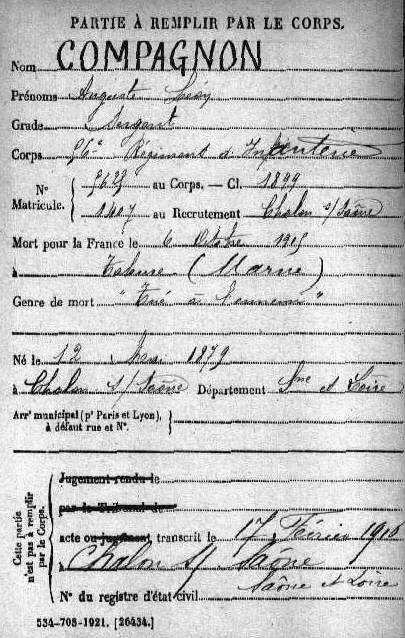 PARTIE À REMPLIR PAR LE CORPS.
Nom COMPAGNON
Prénoms Auguste
Grade Sergent
Corps 56e Régiment d'Infanterie
N° Matricule. 5623 au Corps. — Cl. 1899
1407 au Recrutement Chalon s/Saône
Mort pour la France le 6 Octobre 1915
à Tahure (Marne)
Genre de mort "Tué à l'ennemi"
Né le 12 Mai 1879
à Chalon s/Saône Département Sne et Loire
Arrt municipal (pr Paris et Lyon), à défaut rue et N°.
Cette partie n'est pas à remplir par le Corps.
Jugement rendu le
par le Tribunal de
acte ou jugement transcrit le 17 Février 1916
à Chalon s/ Saône
Saône et Loire
N° du registre d'état civil
534-708-1921. [26434.]